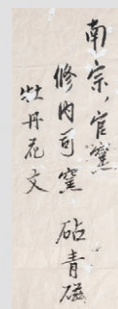 南宗，官窯
修内司窯　砧青磁
牡丹花文